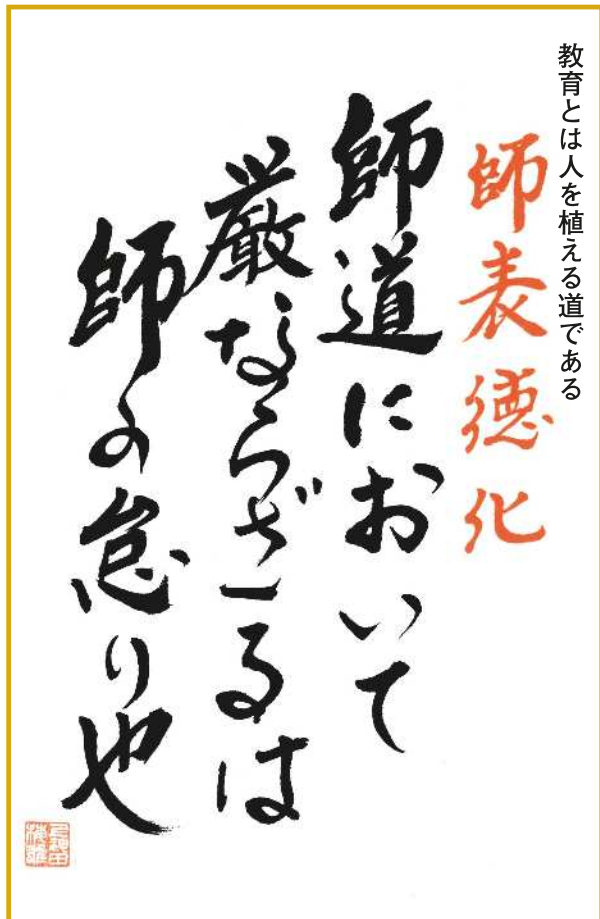 教育とは人を植える道である
師表徳化
師道において
厳ならざるは
師の怠り也